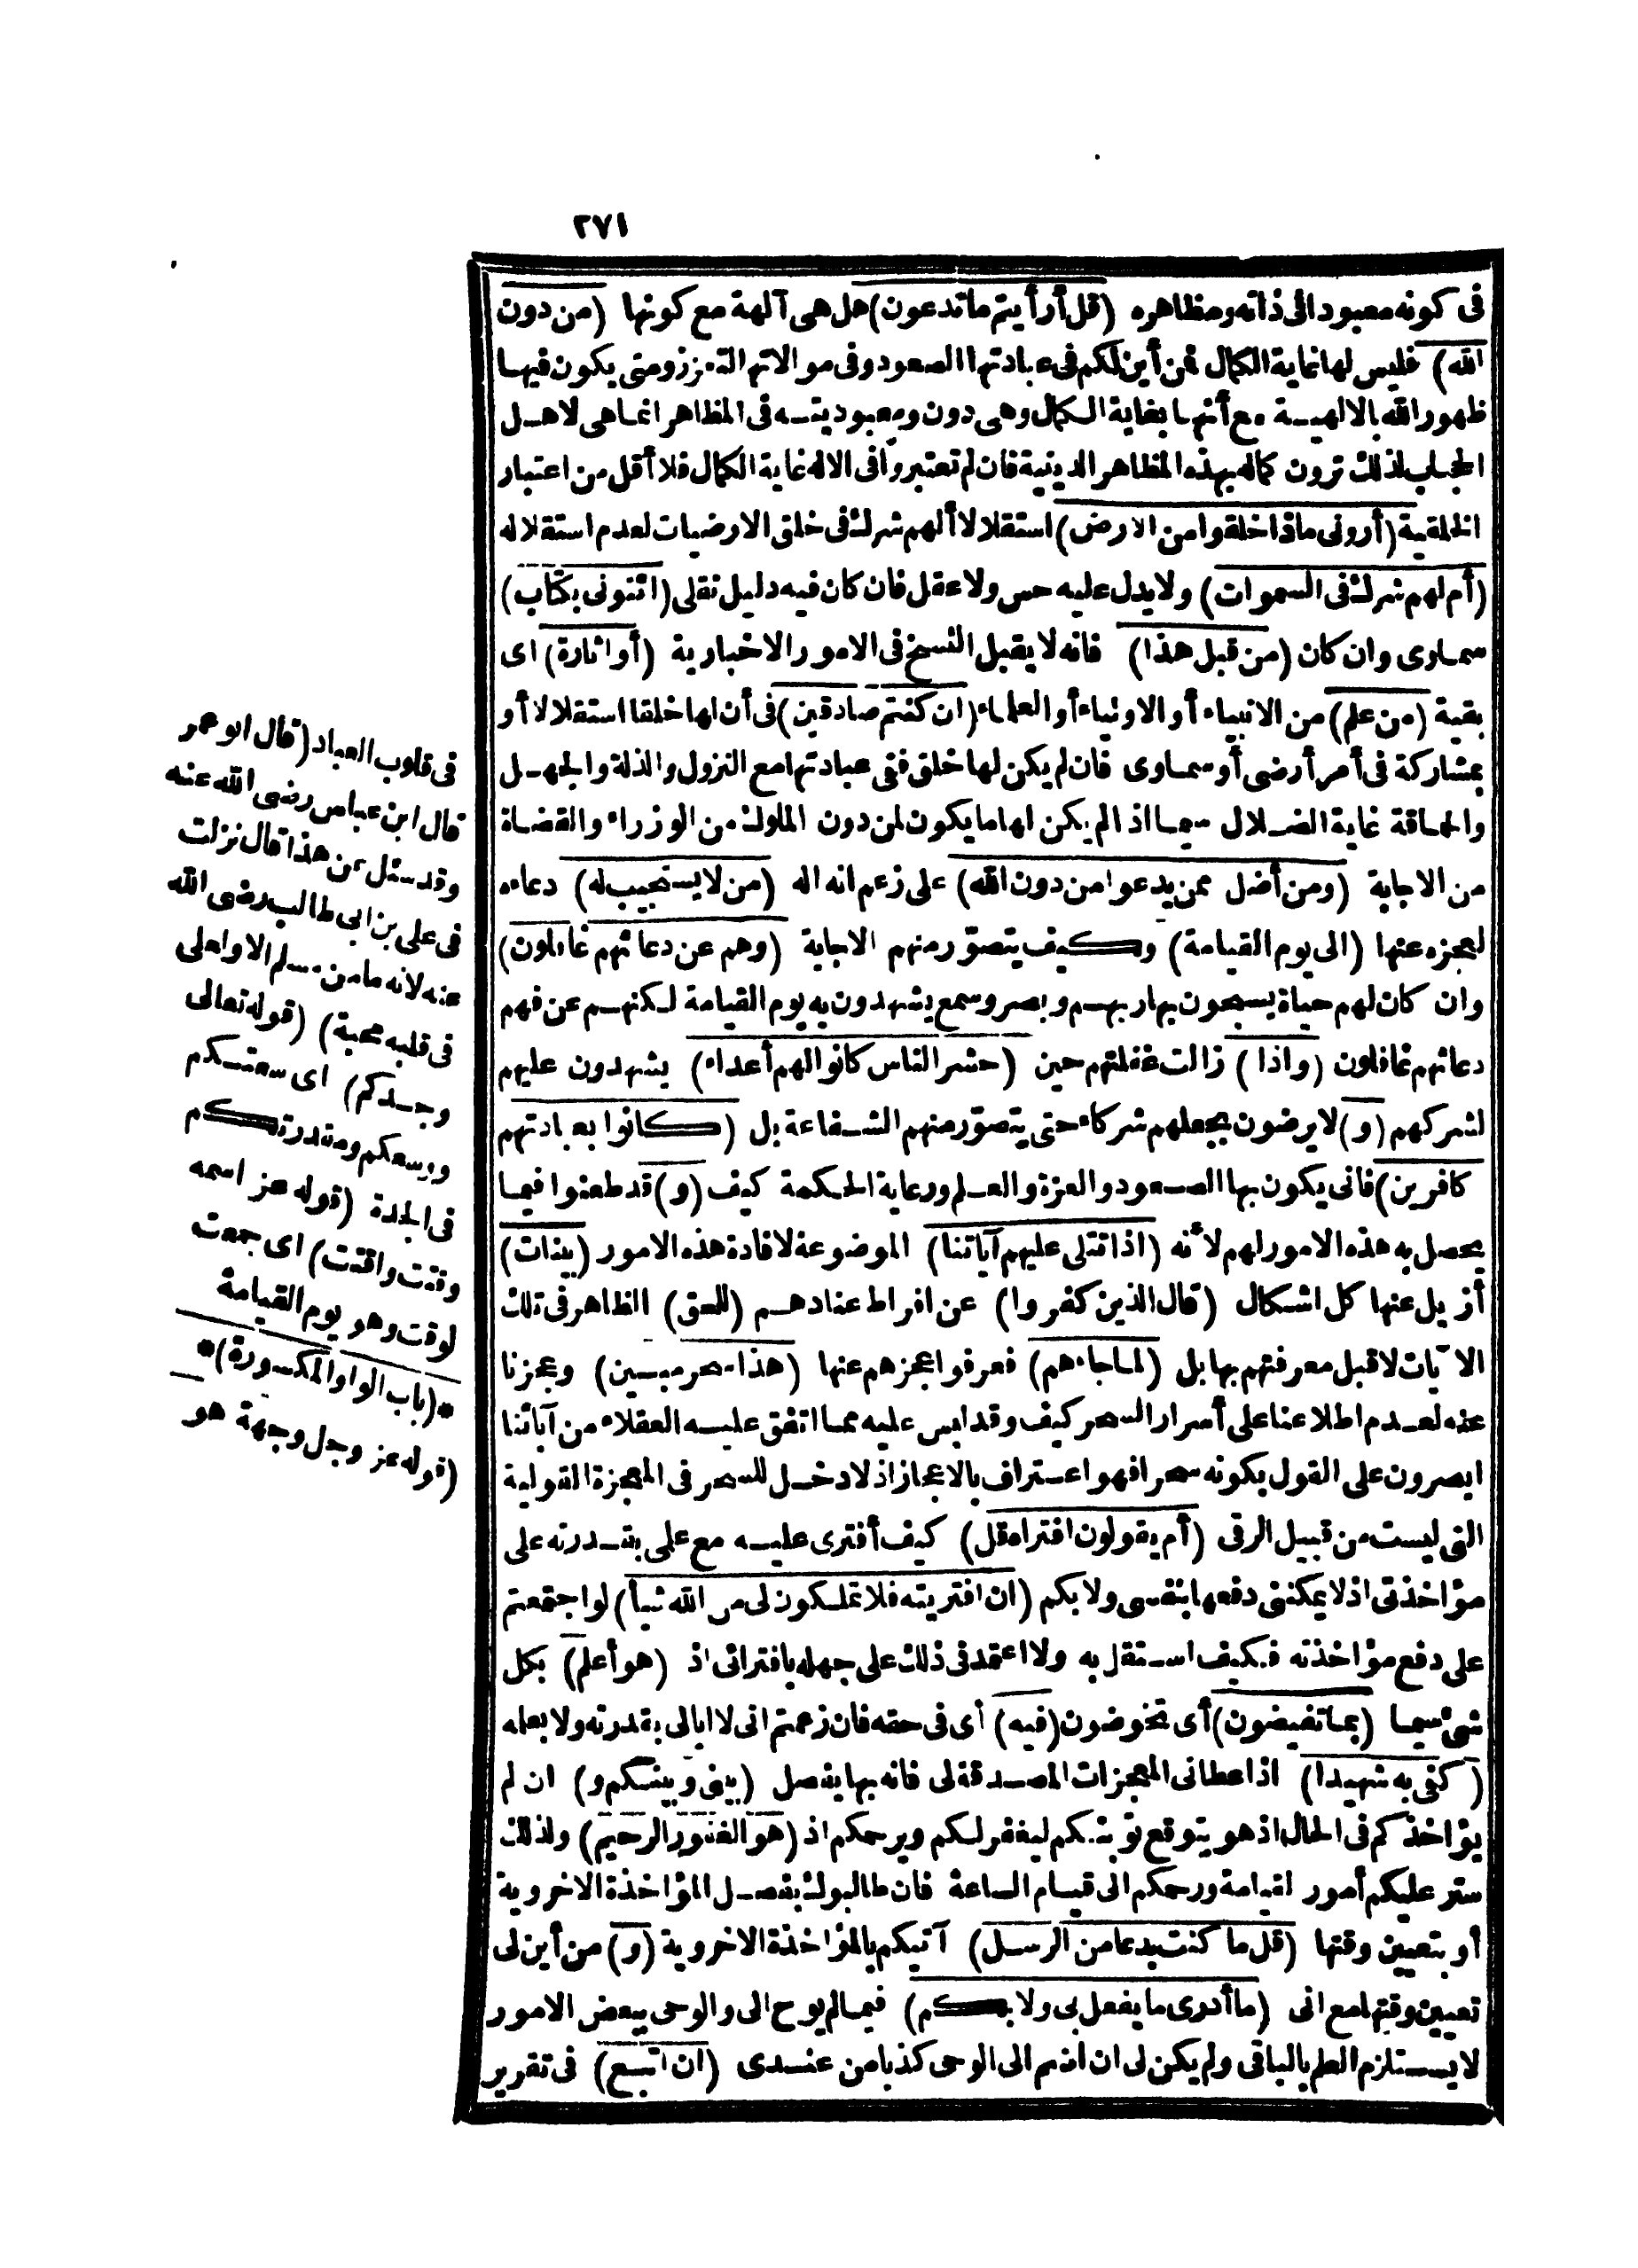 ٢٧١
فى كونه معبودا فى ذاته ومظاهره (قل أرأيتم ماتدعون) هل هى آلهة مع كونها (من دون
الله) فليس لها نهاية الكمال فمن أين لكم فى عبادتها الصعود وفى موالاتها التعزز ومتى يكون فيها
ظهور الله بالالهية مع أنها بغاية الكمال وهى دون ومعبوديته فى المظاهر انما هى لاهل
الحجاب لذلك ترون كماله بهذه المظاهر الدينية فان لم تعتبروا فى الاله غاية الكمال فلا أقل من اعتبار
الخلقية (أرونى ماذا خلقوا من الارض) استقلالا ألهم شرك فى خلق الارضيات لعدم استقلاله
(أم لهم شرك فى السموات) ولا يدل عليه حس ولا عقل فان كان فيه دليل نقلى (ائتونى بكتاب)
سماوى وان كان (من قبل هذا) فانه لا يقبل النسخ فى الامور الاخبارية (أو اثارة) اى
بقية (من علم) من الانبياء أو الاولياء أو العلماء (ان كنتم صادقين) فى أن لها خلقا استقلالا أو
بمشاركة فى أمر أرضى أو سماوى فان لم يكن لها خلق ففى عبادتها مع النزول والذلة والجهل
والحماقة غاية الضلال سيما اذا لم يكن لها ما يكون لمن دون الملوك من الوزراء والقضاة
من الاجابة (ومن أضل ممن يدعوا من دون الله) على زعم انه اله (من لا يستجيب له) دعاءه
لعجزه عنها (الى يوم القيامة) وكيف يتصوّر منهم الاجابة (وهم عن دعائهم غافلون)
وان كان لهم حياة يسبحون بها ربهم وبصر وسمع يشهدون به يوم القيامة لكنهم عن فهم
دعائهم غافلون (واذا) زالت غفلتهم حين (حشر الناس كانوا لهم أعداء) يشهدون عليهم
لشركهم (و) لا يرضون بجعلهم شركاء حتى يتصوّر منهم الشفاعة بل (كانوا بعبادتهم
كافرين) فانى يكون بها الصعود والعزة والعلم ورعاية الحكمة كيف (و) قد طعنوا فيما
يحصل به هذه الامور لهم لأنه (اذا تتلى عليهم آياتنا) الموضوعة لافادة هذه الامور (بينات)
أزيل عنها كل اشكال (قال الذين كفروا) عن افراط عنادهم (للحق) الظاهر فى تلك
الآيات لا قبل معرفتهم بها بل (لما جاءهم) فعرفوا عجزهم عنها (هذا سحر مبين) وعجزنا
عنه لعدم اطلاعنا على أسرار السحر كيف وقد ليس عليه مما اتفق عليه العقلاء من آبائنا
ايصرون على القول بكونه سحرا فهو اعتراف بالاعجاز اذ لا دخل للسحر فى المعجزة القولية
التى ليست من قبيل الرقى (أم يقولون افتراه قل) كيف أفترى عليه مع علمى بقدرته على
مؤاخذتى اذ لا يمكننى دفعها بنفسى ولا بكم (ان افتريته فلا تملكون لى من الله شيأ) لو اجتمعتم
على دفع مؤاخذته فكيف استقل به ولا اعتمد فى ذلك على جهله بافترائى اذ (هو أعلم) بكل
شئ سيما (بما تفيضون) أى تخوضون (فيه) أى فى حقه فان زعمتم انى لا ابالى بقدرته ولا بعلمه
(كفى به شهيدا) اذ اعطانى المعجزات المصدقة لى فانه بها يفصل (بينى وبينكم و) ان لم
يؤاخذكم فى الحال اذ هو يتوقع توبتكم ليغفر لكم ويرحمكم اذ (هو الغفور الرحيم) ولذلك
ستر عليكم أمور القيامة ورحمكم الى قيام الساعة فان طالبوك بتفصيل المؤاخذة الاخروية
أو بتعيين وقتها (قل ما كنت بدعا من الرسل) آتيكم بالمؤاخذة الاخروية (و) من أين لى
تعيين وقتها مع انى (ما أدرى ما يفعل بى ولا بكم) فيما لم يوح الى والوحى ببعض الامور
لا يستلزم العلم بالباقى ولم يكن لى ان اضم الى الوحى كذبا من عندى (ان اتبع) فى تقرير
فى قلوب العباد (قال ابو عمر
قال ابن عباس رضى الله عنه
وقد سئل عن هذا قال نزلت
فى على بن ابى طالب رضى الله
عنه لانه ما من مسلم الا ولعلى
فى قلبه محبة) (قوله تعالى
وجدكم) اى سعتكم
ووسعكم ومقدرتكم
فى الجدة (قوله عز اسمه
وقتت واقتت) اى جمعت
لوقت وهو يوم القيامة
*(باب الواو المكسورة)*
(قوله عز وجل وجهة هو